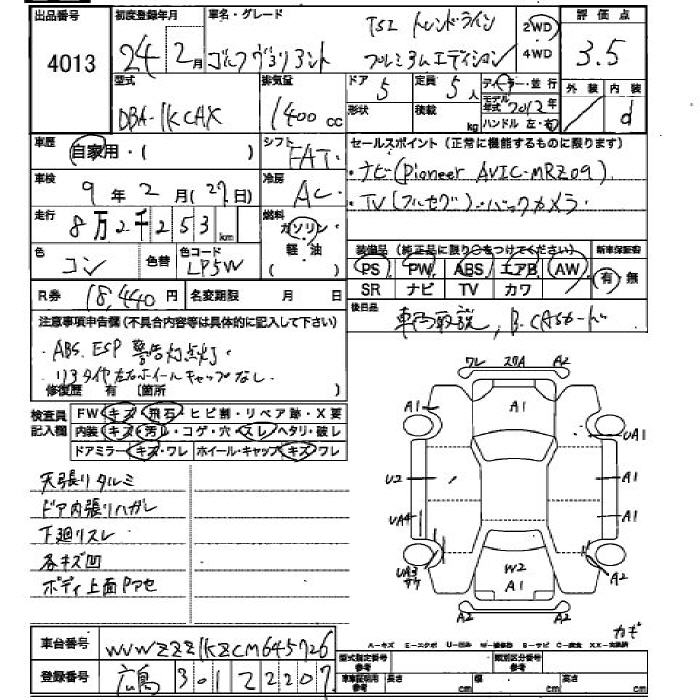 出品番号 4013
初度登録年月 24年 2月
車名・グレード ゴルフ ヴァリアント TSI トレンドライン プレミアムエディション
2WD
4WD
評価点 3.5
型式 DBA-1KCAX
排気量 1400 cc
ドア 5
定員 5人
ディーラー・並行
モデル年式 2012年
形状
積載 kg
ハンドル 左・右
外装
内装 d
車歴 自家用・( )
シフト FAT
セールスポイント(正常に機能するものに限ります)
車検 9年 2月(27日)
冷房 AC
・ナビ(Pioneer AVIC-MRZ09)
・TV(フルセグ)・バックカメラ
走行 8万2千253 km
燃料 ガソリン・軽・油 ( )
色 コン
色替
色コード LP5W
装備品(純正品に限り○をつけてください)
新車保証書
PS PW ABS エアB AW
SR ナビ TV カワ
有・無
R券 18,440円
名変期限 月 日
後日品 車両取説, B-CASカード
注意事項申告欄(不具合内容等は具体的に記入して下さい)
・ABS. ESP 警告灯点灯
修復歴 有 (箇所 )
検査員記入欄
FW・キズ・飛石・ヒビ割・リペア跡・X要
内装・キズ・汚レ・コゲ・穴・スレ・ヘタリ・破レ
ドアミラー・キズ・ワレ ホイール・キャップ・キズ・ワレ
天張りタルミ
ドア内張りハガレ
下廻りスレ
各キズ凹
ボディ上面Pアセ
ワレ スリA A2
A1 A1 UA1
U2 A1
UA4 A1
UA3 W2 A1 A2
A2 A2
カギ
A-キズ E-エクボ U-凹み W-補修跡 S-サビ C-腐食 XX-交換済
車台番号 WVWZZZ1KZCM645726
登録番号 広島 301 2 2207
型式指定番号 参考
類別区分番号 参考
車庫証明用 参考 長さ cm 幅 cm 高さ cm